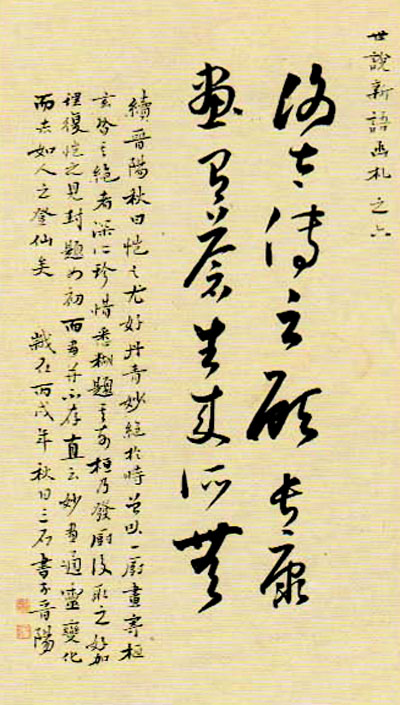 世說新語札之六
謝太傅云顧長康
畫有蒼生来所無
續晉陽秋曰愷之尤好丹青妙絕於時曾以一廚畫寄桓
玄皆其絕者深所珍惜悉糊題其前桓乃發廚後取之好加
理復愷之見封題如初而畫并不存直云妙畫通靈變化
而去如人之登仙矣 歲在丙戌年秋日三石書于晉陽